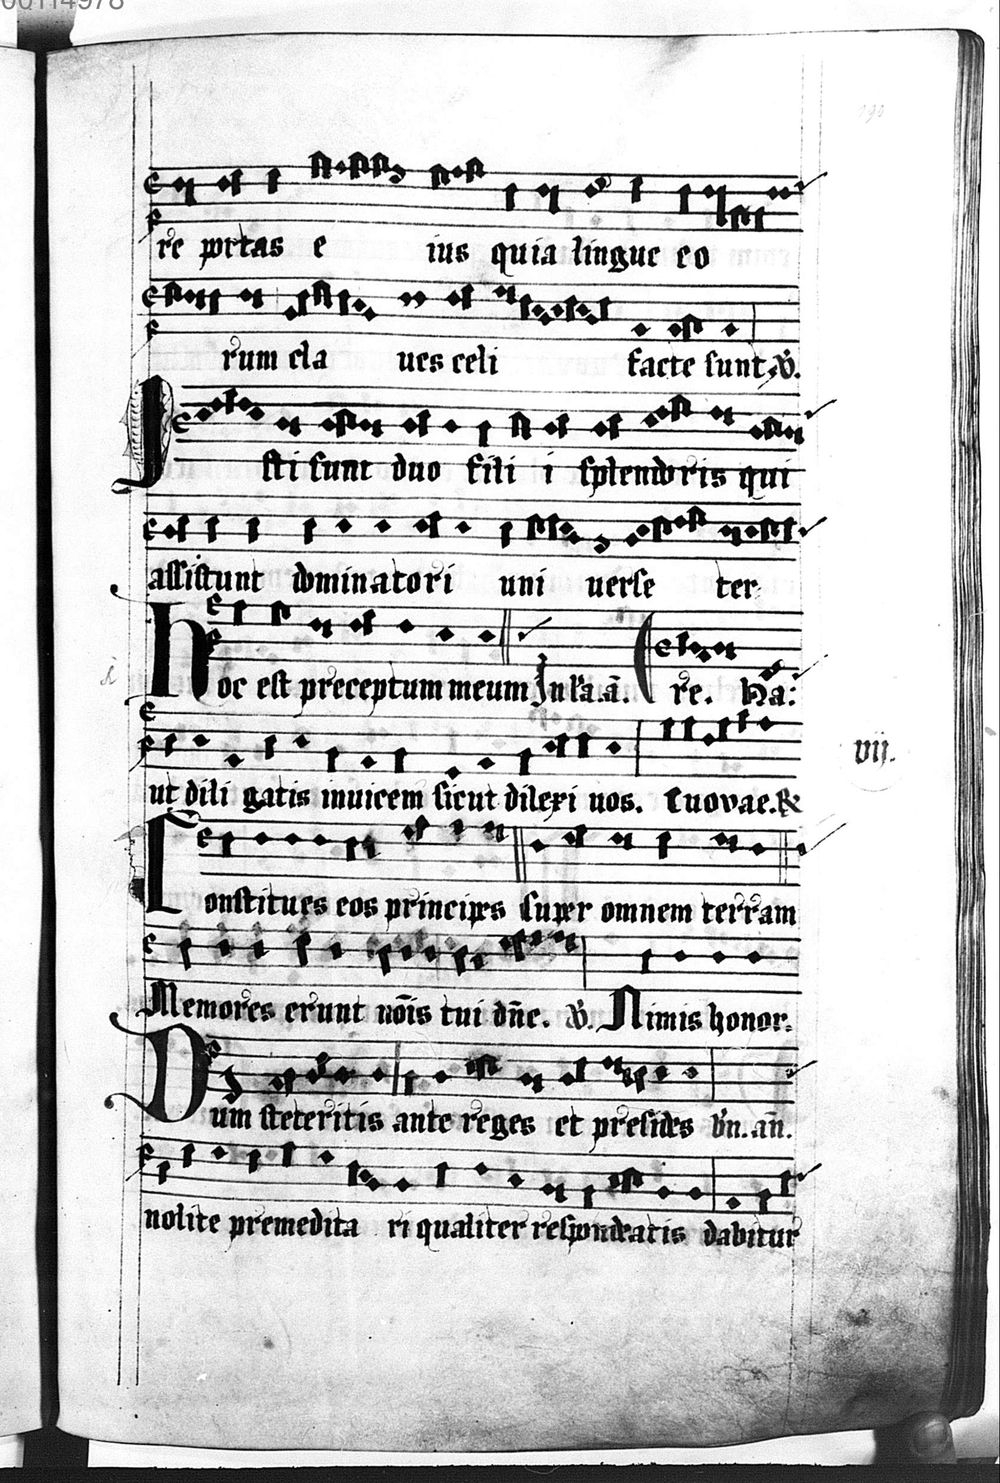 00114978
190
re portas e ius quia lingue eo
rum cla ues celi facte sunt. V.
Isti sunt duo fili i splendoris qui
assistunt dominatori uni uerse ter
Hoc est preceptum meum In la. a. re. ha:
ut dili gatis inuicem sicut dilexi uos. Euovae. &
vij.
Constitues eos principes Super omnem terram
Memores erunt nois tui dne. V. Nimis honor.
Dum steteritis ante reges et presides bn. an.
nolite premedita ri qualiter respondeatis dabitur